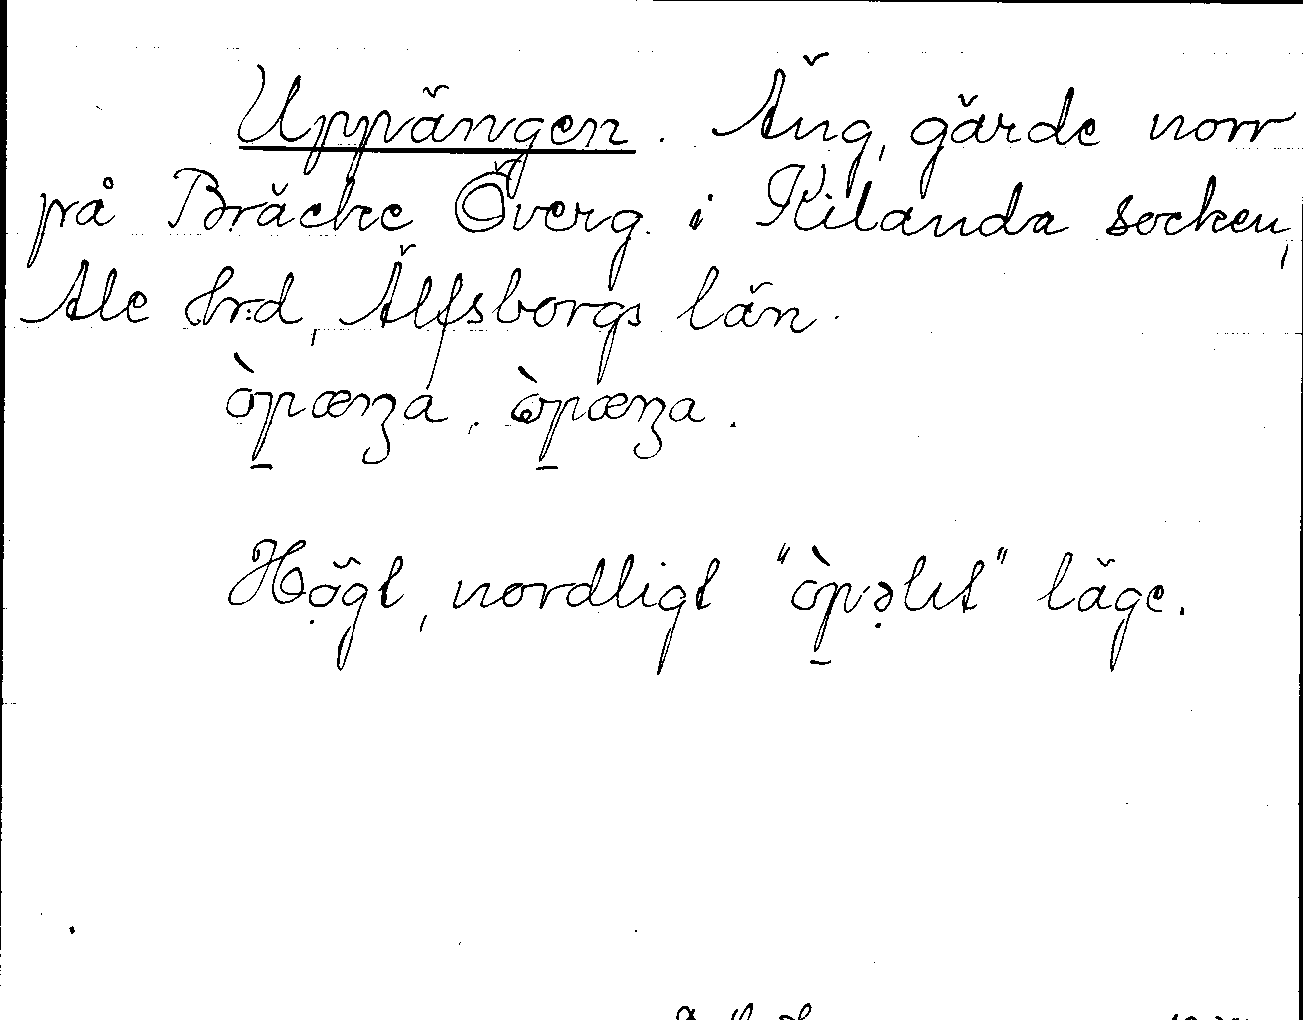 Uppängen. Äng, gärde norr
på Bräcke Överg. i Kilanda socken,
Ale hrd, Älfsborgs län.
òp̠æŋa. ὼp̠æŋa.
Högt, nordligt "òp̠əlıt" läge.